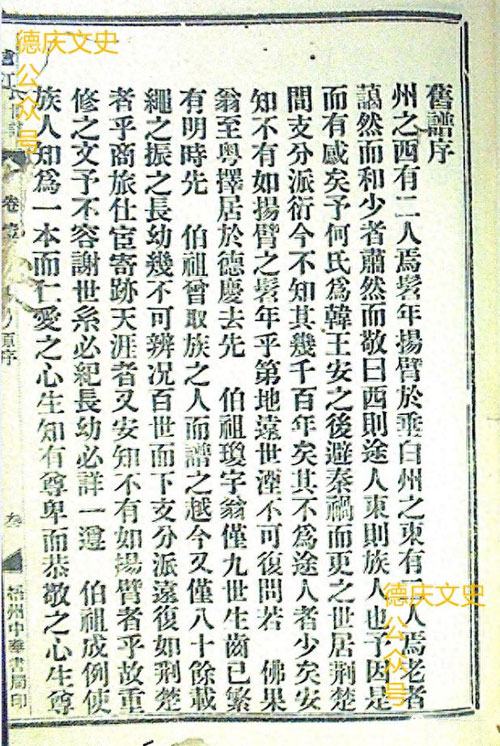 舊譜序
州之西有二人焉髫年揚臂於垂白州之東有二人焉老者
藹然而和少者肅然而敬曰西則途人東則族人也予因是
而有感矣予何氏爲韓王安之後避秦禍而更之世居荆楚
間支分派衍今不知其幾千百年矣其不爲途人者少矣安
知不有如揚臂之髫年乎第地遠世湮不可復問若　佛果
翁至粤擇居於德慶去先　伯祖瓊宇翁僅九世生齒已繁
有明時先　伯祖曾取族之人而譜之越今又僅八十餘載
繩之振之長幼幾不可辨况百世而下支分派遠復如荆楚
者乎商旅仕宦寄跡天涯者又安知不有如揚臂者乎故重
修之文予不容謝世系必紀長幼必詳一遵　伯祖成例使
族人知爲一本而仁愛之心生知有尊卑而恭敬之心生尊
廬江
卷壹
序
梧州中華書局印
德庆文史
公众号
德庆文史
公众号